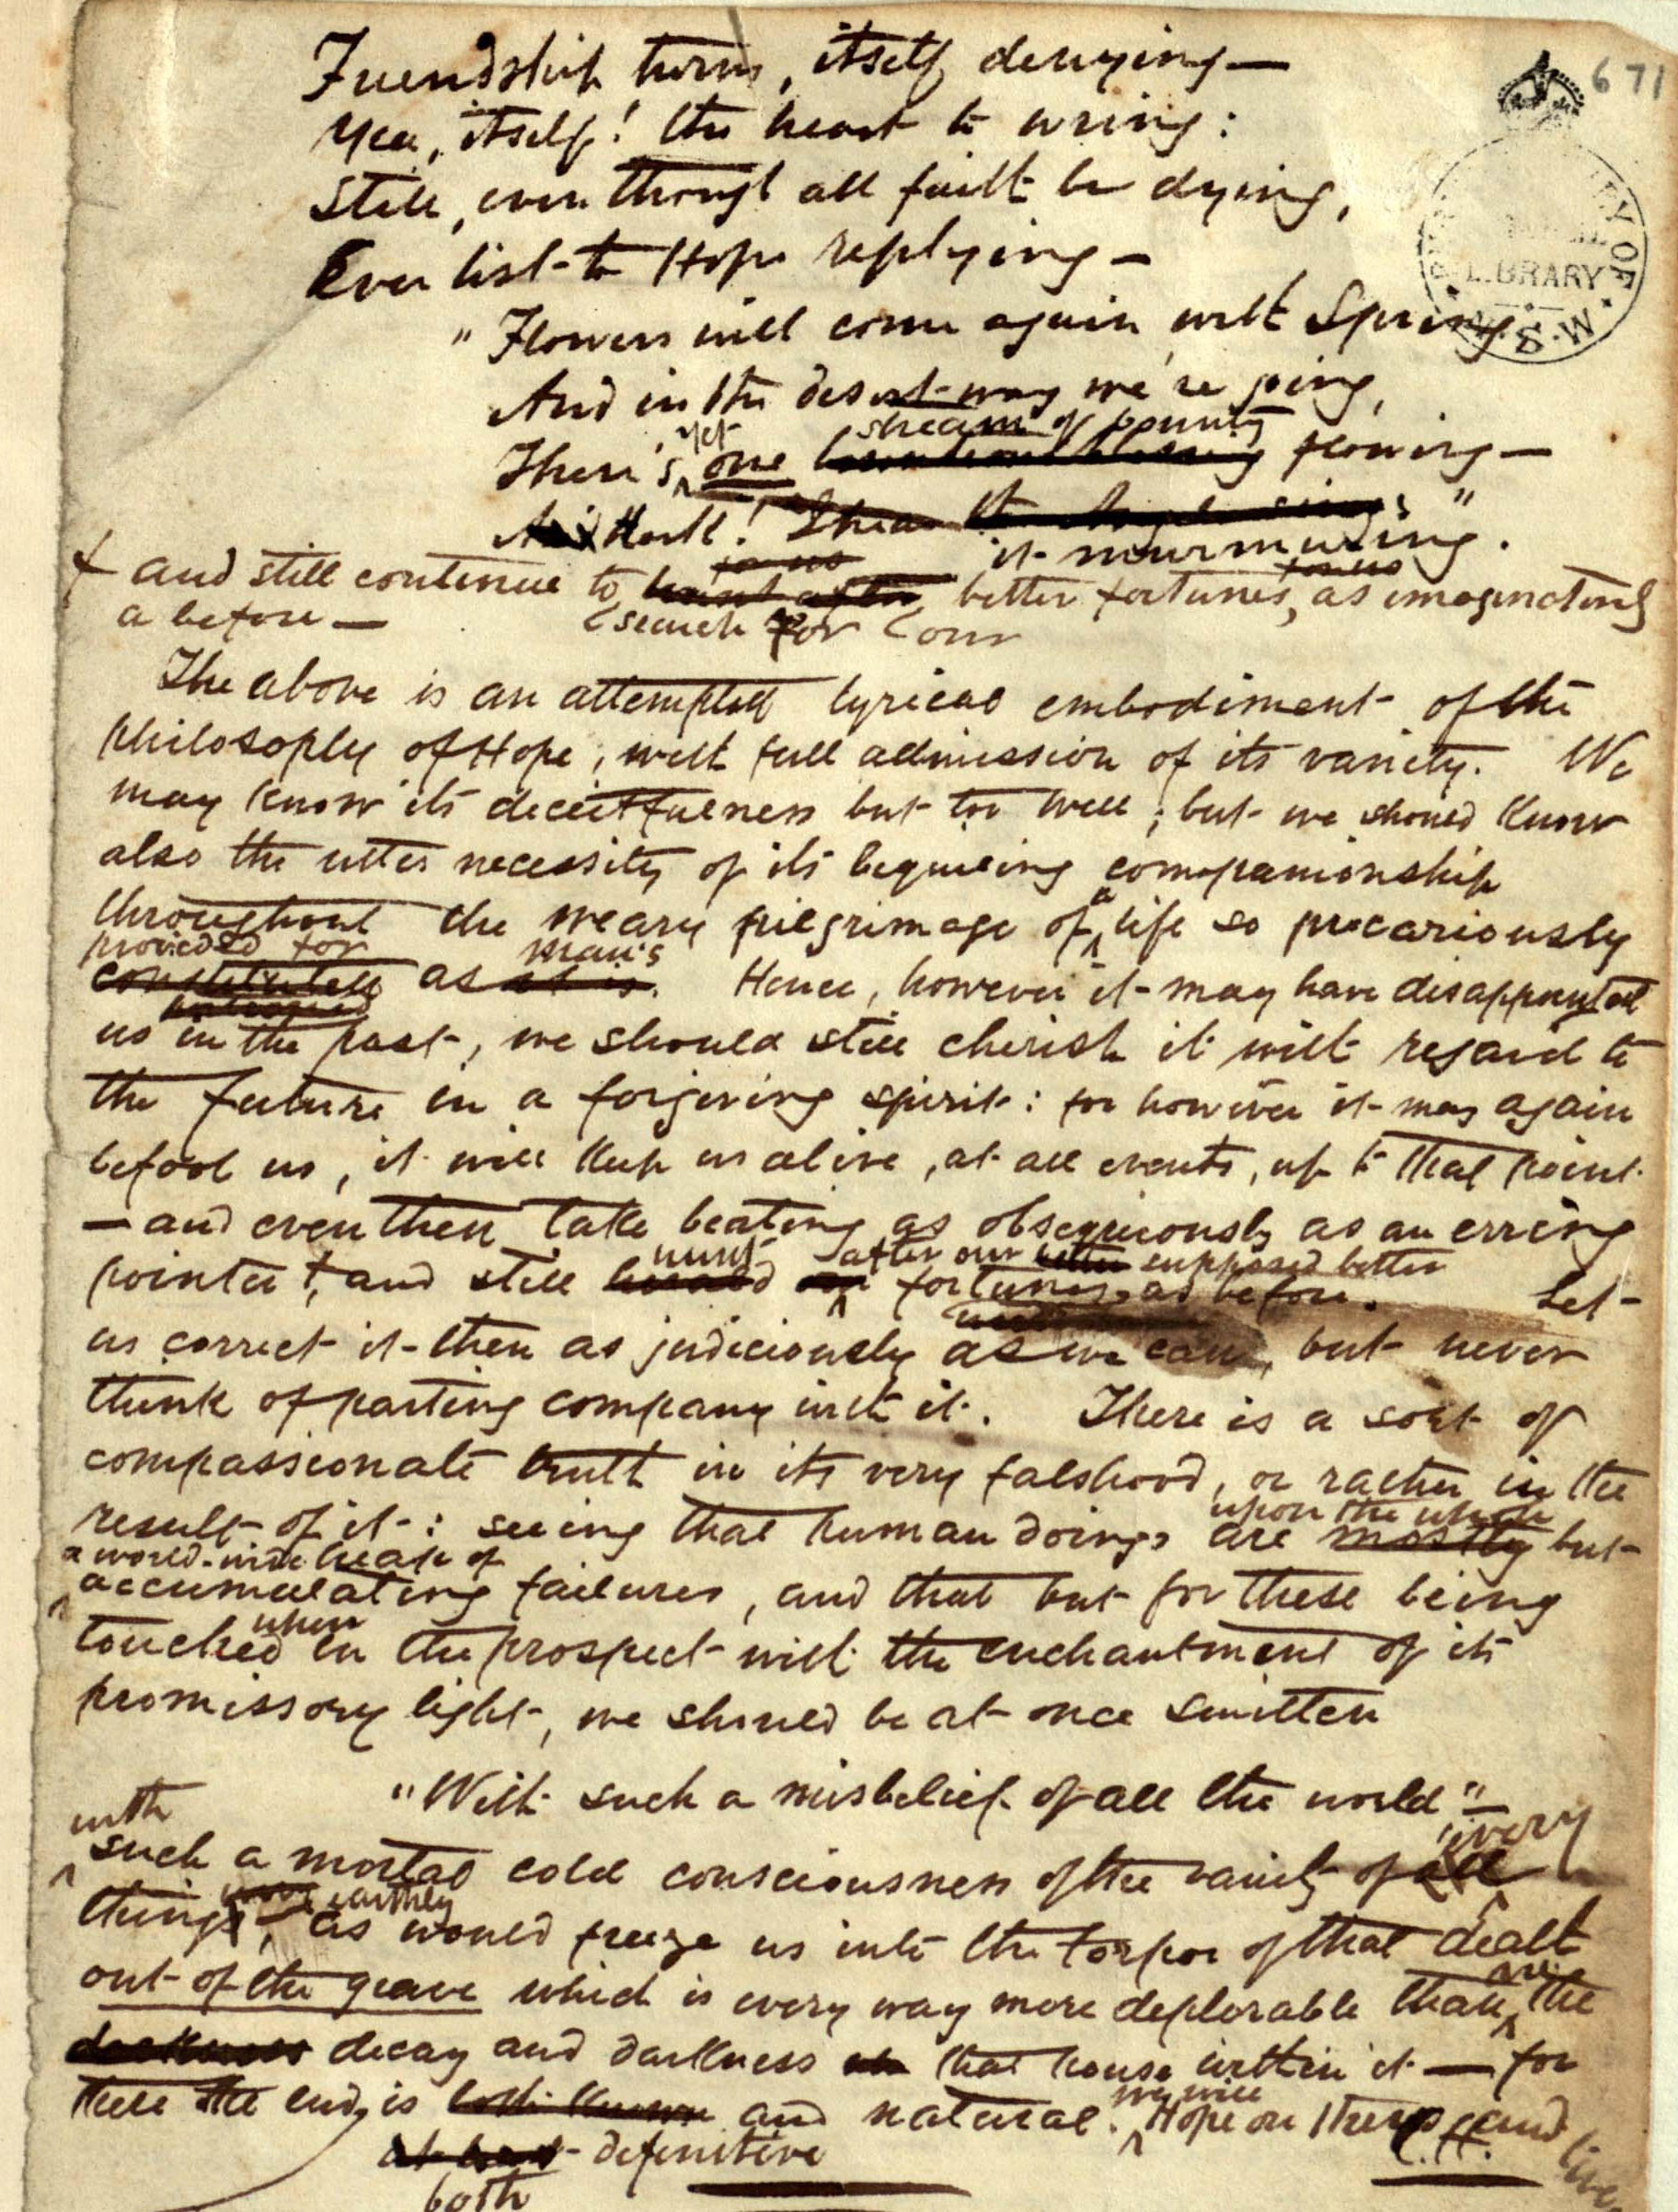 671
Friendship turns, itself denying—
Yea, itself! the heart to wring:
Still, even though all faith be dying,
Ever list to Hope replying—
LIBRARY
"Flowers will come again with Spring
And in the desert way we're going,
stream of bounty
There's yet one flowing—
Hark! "
it murmuring.
for us for us
+ and still continue to hunt after better fortunes, as imaginatively
as before — search for our
The above is an attempted lyrical embodiment of the
philosophy of Hope, with full admission of its vanity. We
may know its deceitfulness but too well; but we should know
also the utter necessity of its beguiling companionship
throughout the weary pilgrimage of a life so precariously
provided for man's
constituted as as it is. Hence, however it may have disappointed
us in the past, we should still cherish it with regard to
the future in a forgiving spirit: for however it may again
befool us, it will keep us alive, at all events, up to that point
— and even then take beating as obsequiously as an erring
hunt after our better supposed better
pointer +, and still fortunes, as before. Let
us correct it then as judiciously as we can, but never
think of parting company with it. There is a sort of
compassionate truth in its very falshood, or rather in the
upon the whole
result of it: seeing that human doings are mostly but
a world-wide heap of
accumulating failures, and that but for these being
when
touched in the prospect with the enchantment of its
promissory light, we should be at once smitten
"With such a misbelief of all the world"—
with every
such a mortal cold consciousness of the vanity of all
earthly
things, as would freeze us into the torpor of that death
out of the grave which is every way more deplorable than the
darkness decay and darkness that house within it — for
we will
there the end, is both known and natural. Hope on then, and live
at best definitive
both